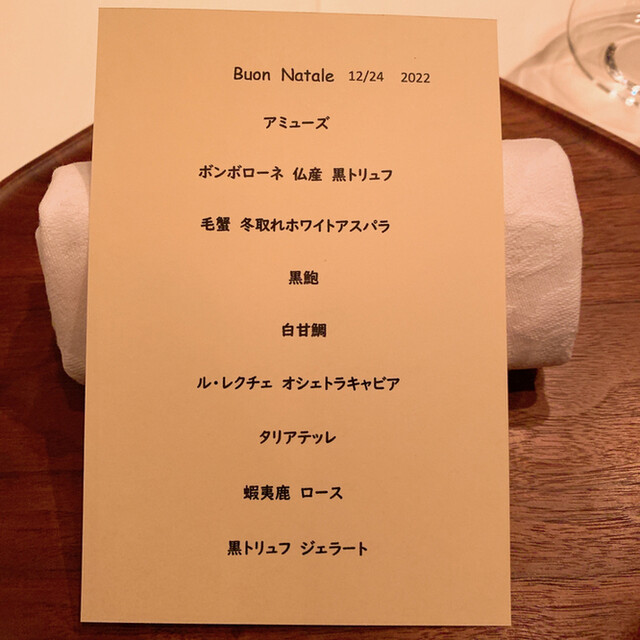 Buon Natale 12/24 2022
アミューズ
ボンボローネ 仏産 黒トリュフ
毛蟹 冬取れホワイトアスパラ
黒鮑
白甘鯛
ル・レクチェ オシェトラキャビア
タリアテッレ
蝦夷鹿 ロース
黒トリュフ ジェラート